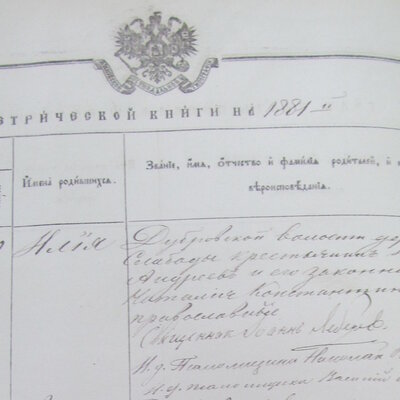 СТРИЧЕСКОЙ КНИГИ НА 1881 й
Имена родившихся.
Званіе, имя, отчество и фамилія родителей, и к
вѣроисповѣданія.
Илія
Дубровской волости дер
Слободы крестьянинъ
Андреевъ и его законна
Наталія Константин
православные
Священникъ Іоаннъ
И. д. Псаломщика Николай
И. д. псаломщика Василій